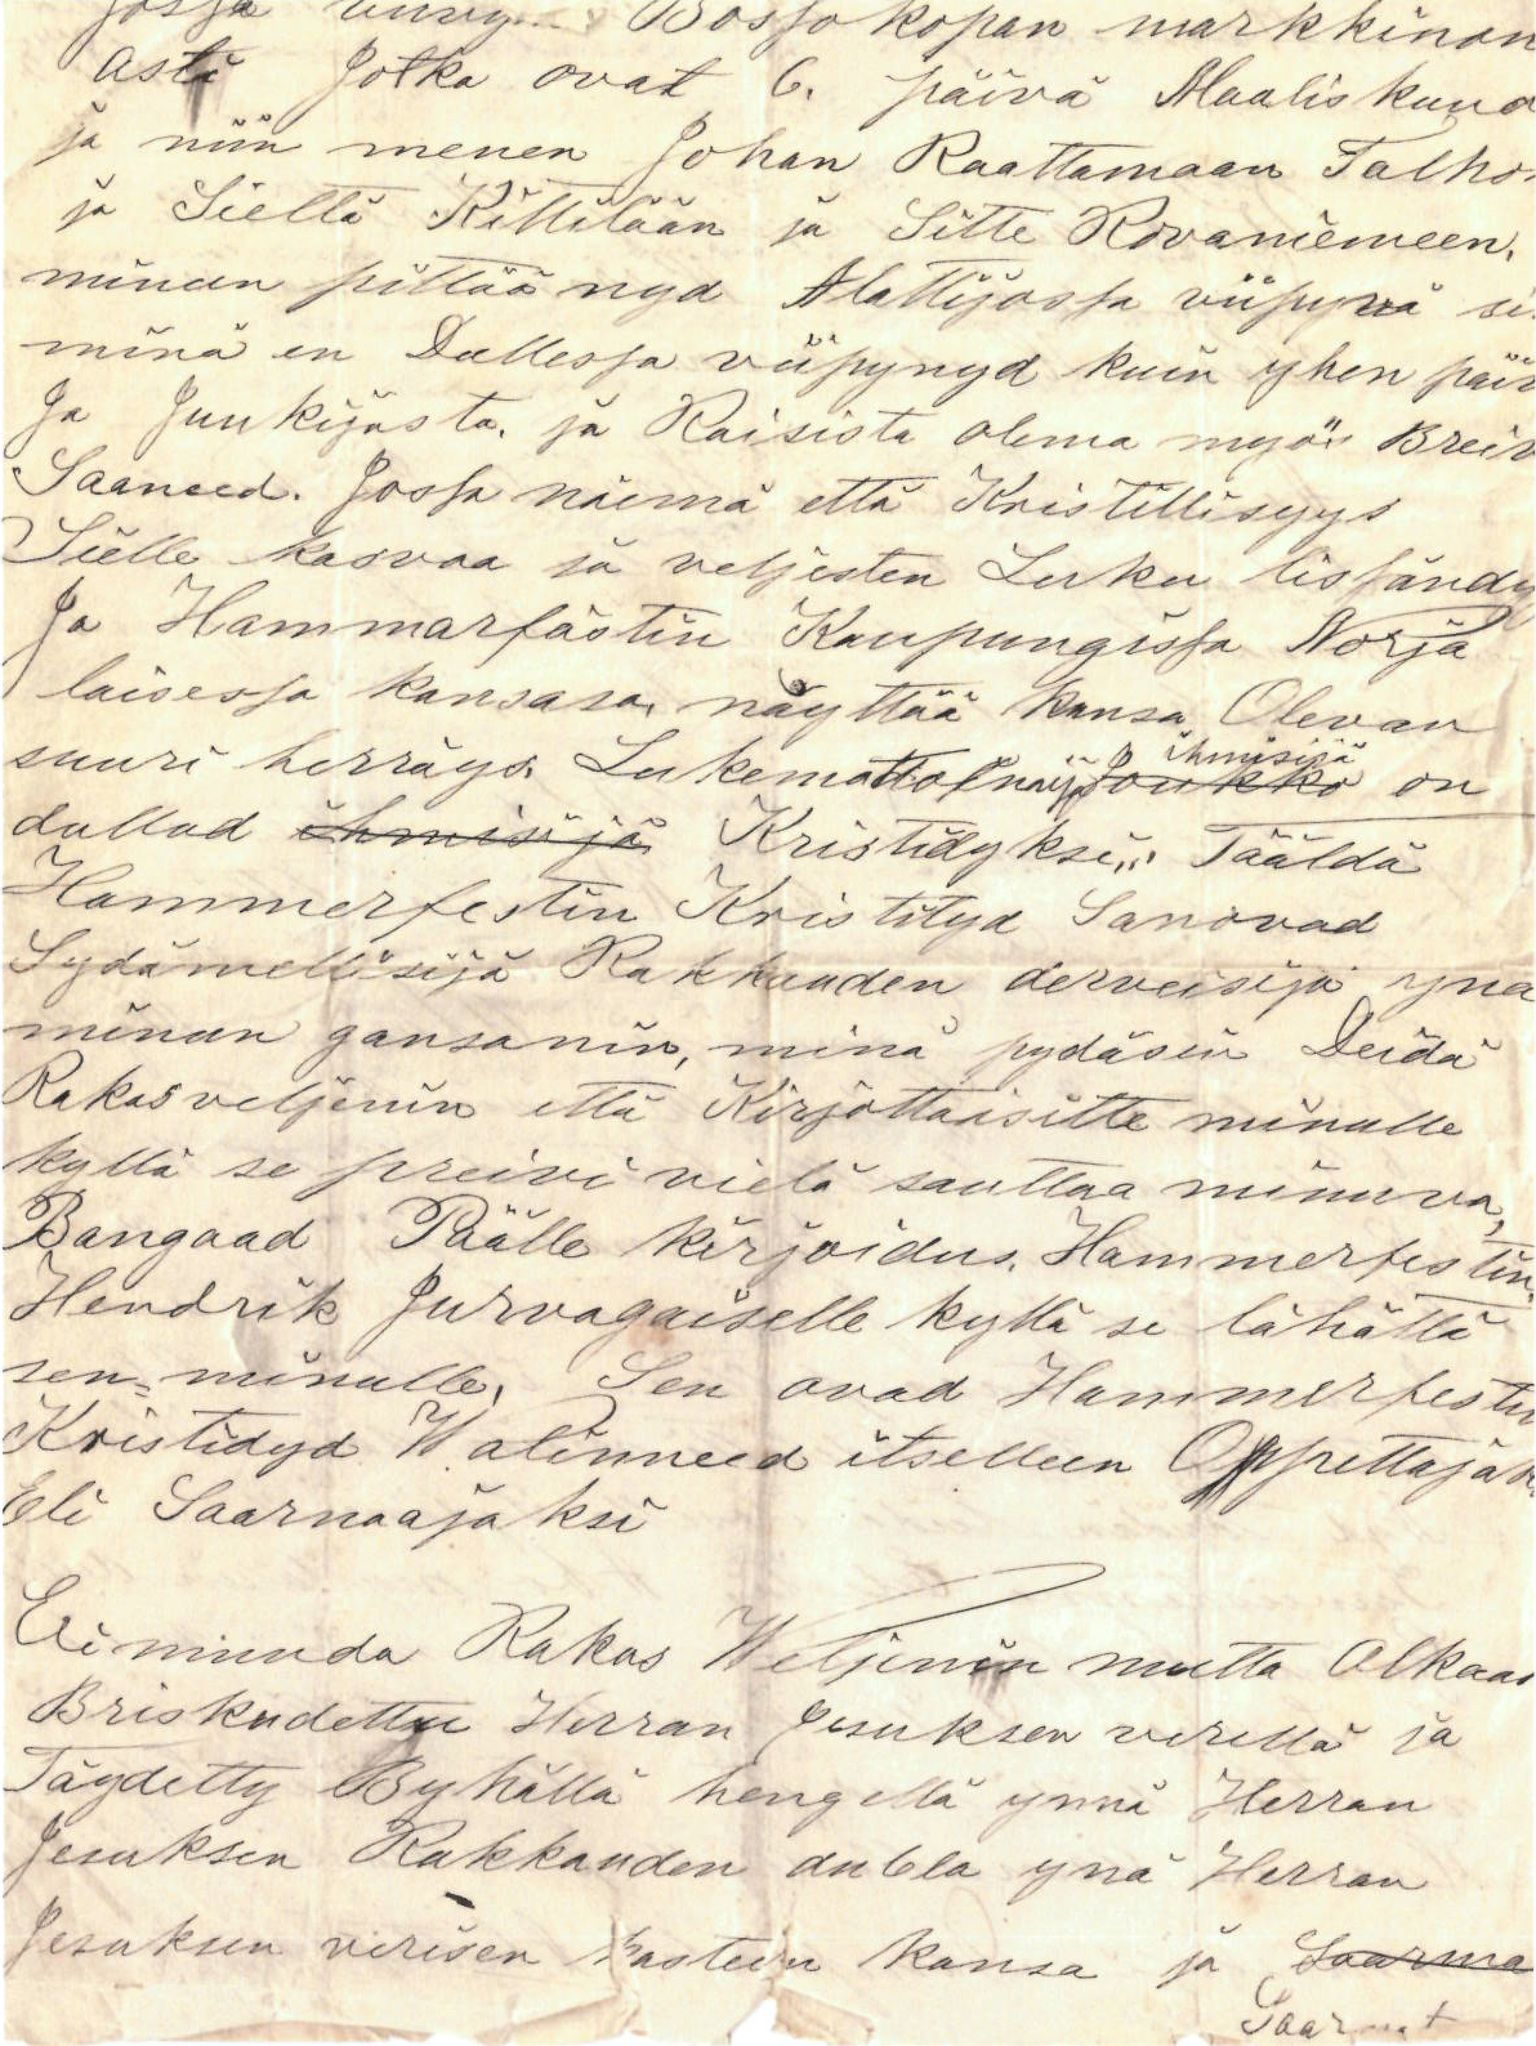 Jossa Bossokopan markkinon
asti Jotka ovat 6. päivä Maaliskuud
ja niin menen Johan Raattamaan Talho
ja Sieltä Kittilään ja Sitte Rovaniemeen,
minun pittää nyd Alattijossa viipynä si
minä en Dullessa viipynyd kuin yhen päiv
Ja Juukijästa, ja Raisista olema myös Breiv
Saaneed. Jossa näemä että Kristillisyys
Sielle kasvaa ja veljesten Luku lissändy
Ja Hammarfästin Kaupungissa Norja
laisessa kansasa, näyttää kansa Olevan
suuri herräys. Lukemattoinaija Joukko ihmisijä on
dullud ihmisijä Kristidyksi,,, Tääldä
Hammerfestin Kristityd Sanovad
Sydämellisijä Rakkauden derveisijä yna
minun gansanin, minä pydäsin Deidä
Rakas veljenin että Kirjottaisitte minulle
kyllä se preivi vielä sauttaa minuva,
Bangaad Päälle kirjoidus. Hammerfestin,
Hendrik Jurvagaiselle kyllä se lähättä
sen= minulle, Sen ovad Hammerfestin
Kristidyd Walinneed itselleen Oppettajak
Eli Saarnaajaksi
Ei muuda Rakas Weljenin mutta Olkaas
Briskudettu Herran Jesuksen verellä ja
Täydetty Byhällä hengellä ynnä Herran
Jesuksen Rakkauden dublla ynä Herran
Jesuksen verisen kasteen kansa ja Saarna